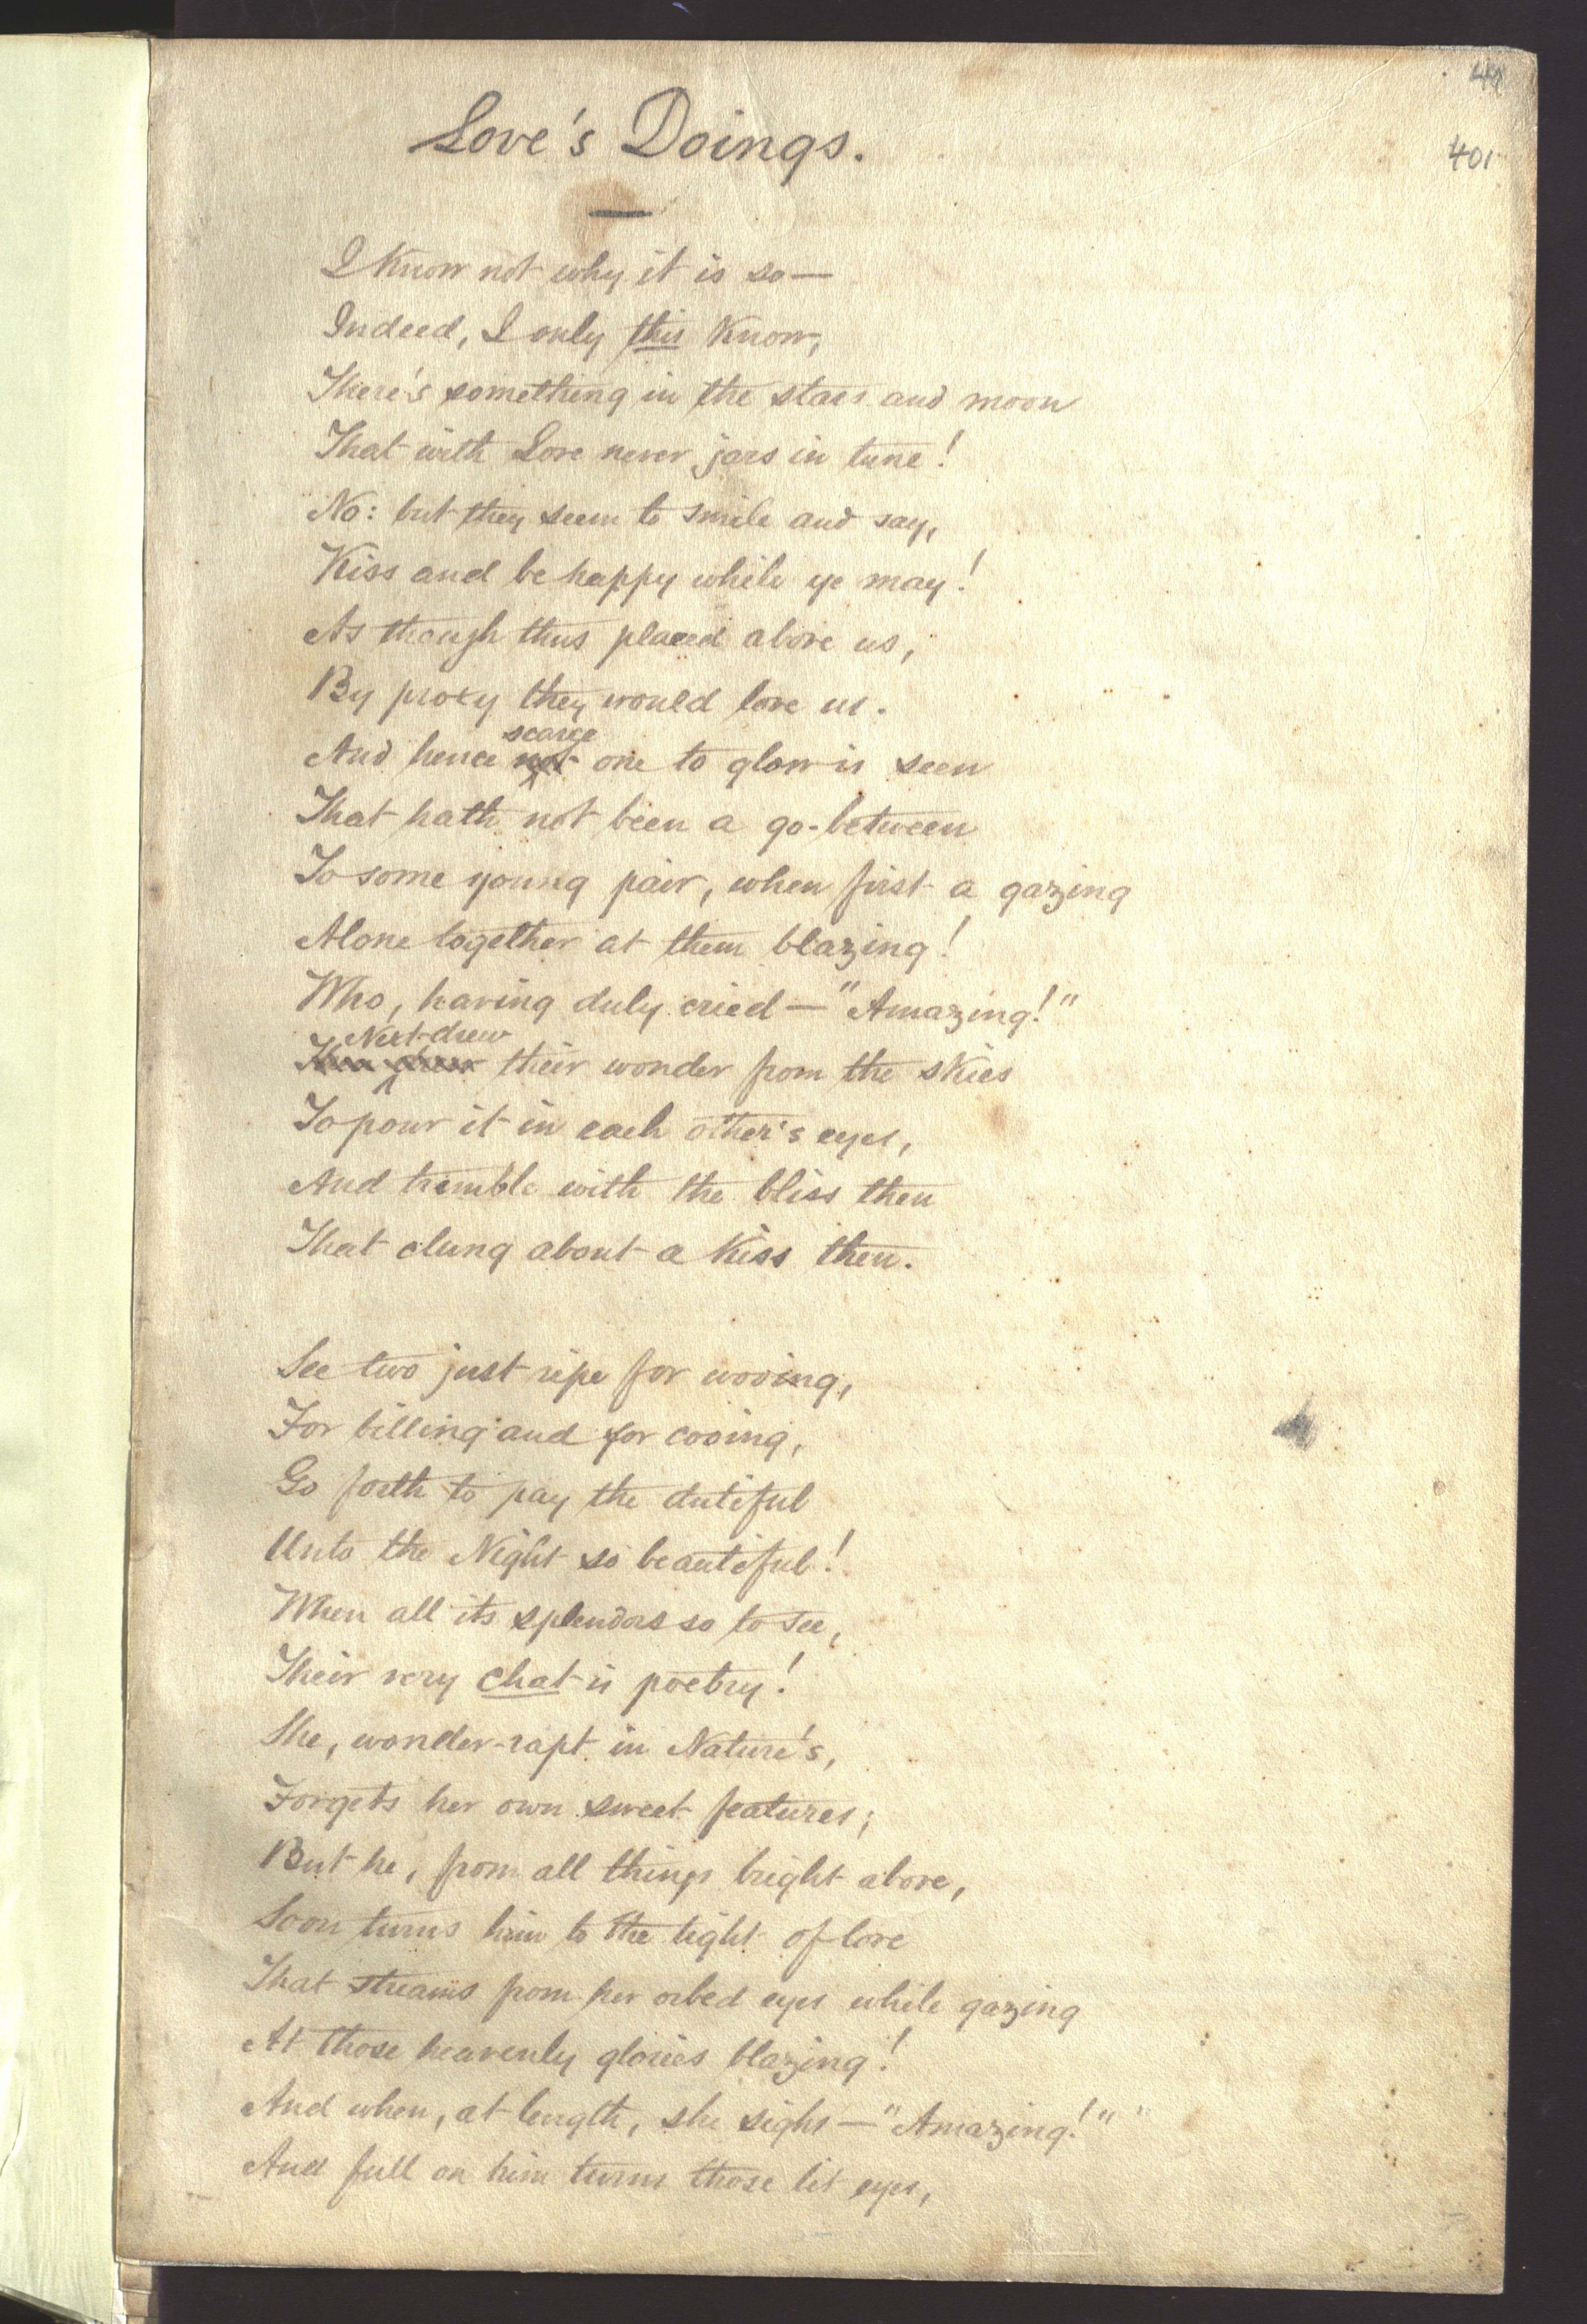 401
Love's Doings.
I Know not why it is so—
Indeed, I only this Know,
There's something in the stars and moon
That with Love never jars in tune!
No: but they seem to smile and say,
Kiss and be happy while ye may!
As though thus placed above us,
By proxy they would love us.
scarce
And hence not one to glow is seen
That hath not been a go-between
To some young pair, when first a gazing
Alone together at them blazing!
Who, having duly cried—"Amazing!"
Next drew
their wonder from the skies
To pour it in each other's eyes,
And tremble with the bliss then
That clung about a Kiss then.
See two just ripe for wooing,
For billing and for cooing,
Go forth to pay the dutiful
Unto the Night so beautiful!
When all its splendors so to see,
Their very chat is poetry!
She, wonder-rapt in Nature's,
Forgets her own sweet features;
But he, from all things bright above,
Soon turns him to the light of love
That streams from her orbed eyes while gazing
At those heavenly glories blazing!
And when, at length, she sighs—"Amazing!"
And full on him turns those lit eyes,